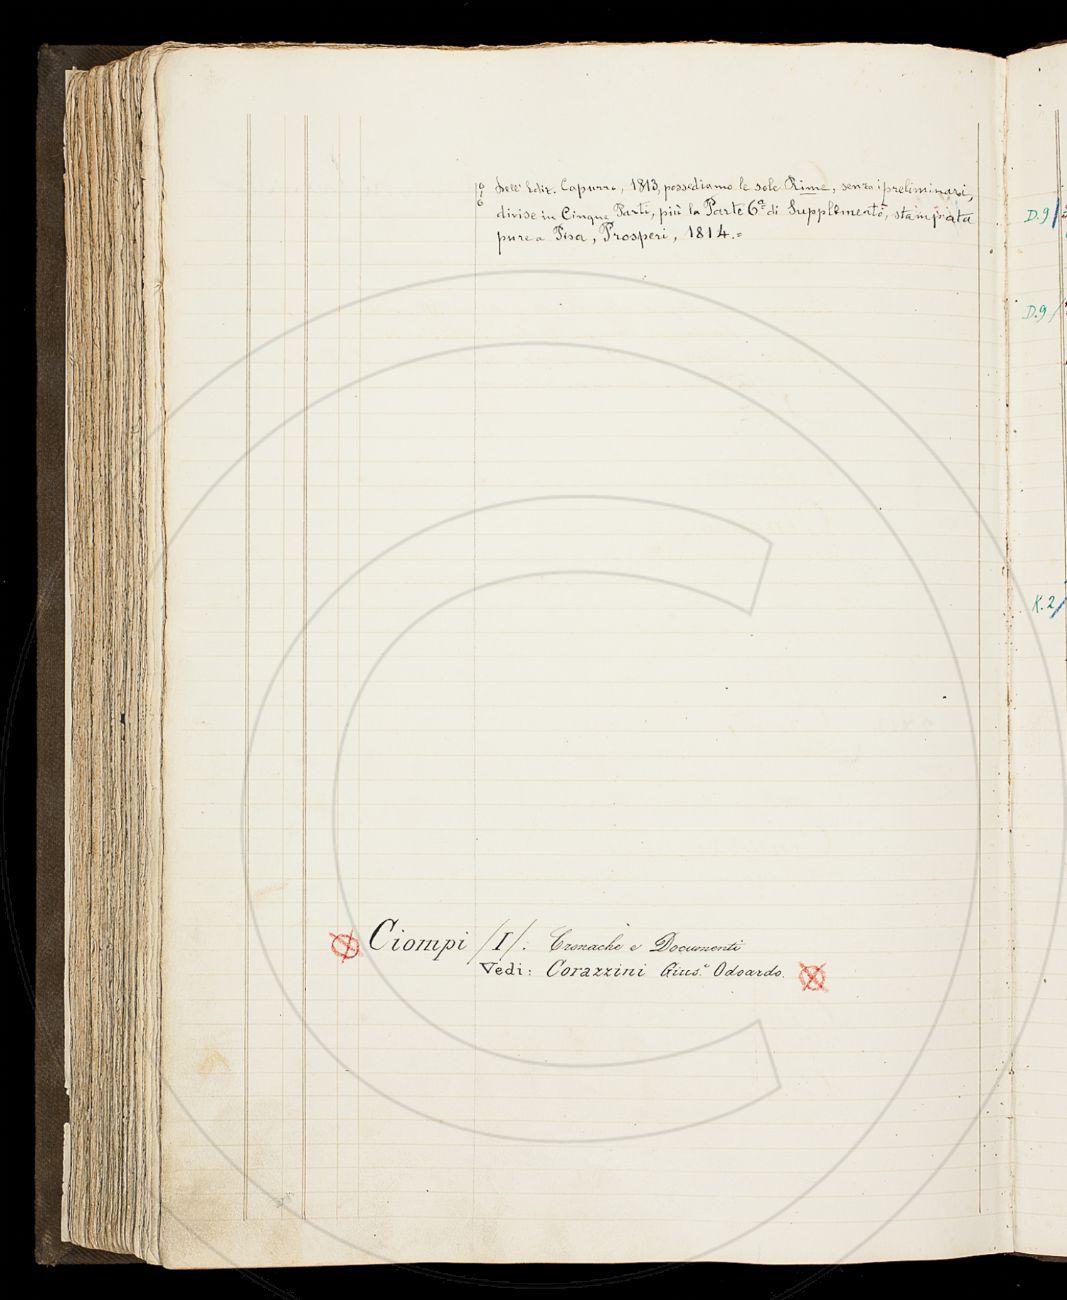 Dell' Ediz. Capurro, 1813, possediamo le sole Rime, senza i preliminari,
divise in Cinque Parti, più la Parte 6ª di Supplemento, stampata
pure a Pisa, Prosperi, 1814.=
D.9/
D.9/
K.2/
Ciompi /I/: Cronache e Documenti
Vedi: Corazzini Gius.e Odoardo.